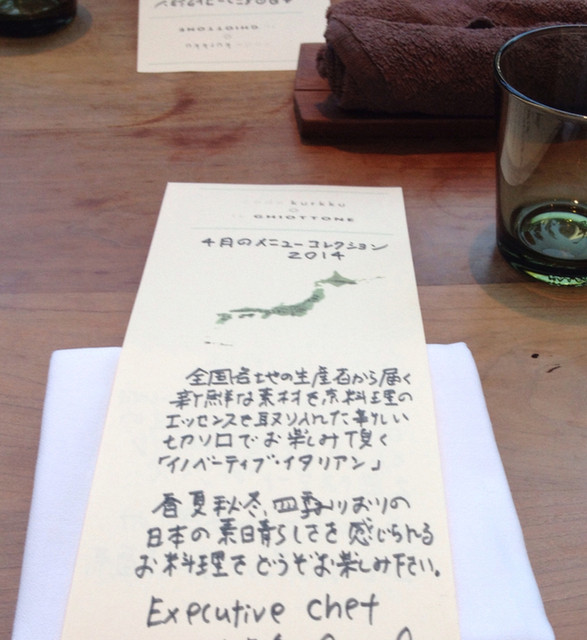 kurkku
GHIOTTONE
kurkku
GHIOTTONE
4月のメニューコレクション
2014
全国各地の生産者から届く
新鮮な素材を京料理の
エッセンスを取り入れた新しい
切り口でお楽しみ頂く
「イノベーティブ・イタリアン」
春夏秋冬、四季おりおりの
日本の素晴らしさを感じられる
お料理をどうぞお楽しみ下さい。
Executive chef